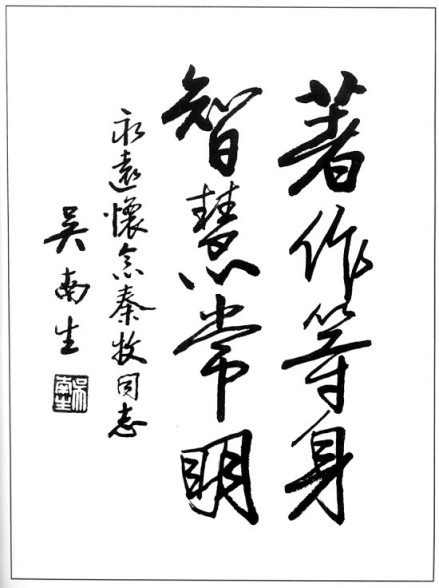 著作等身
智慧常明
永远懷念秦牧同志
吴南生
吴南生